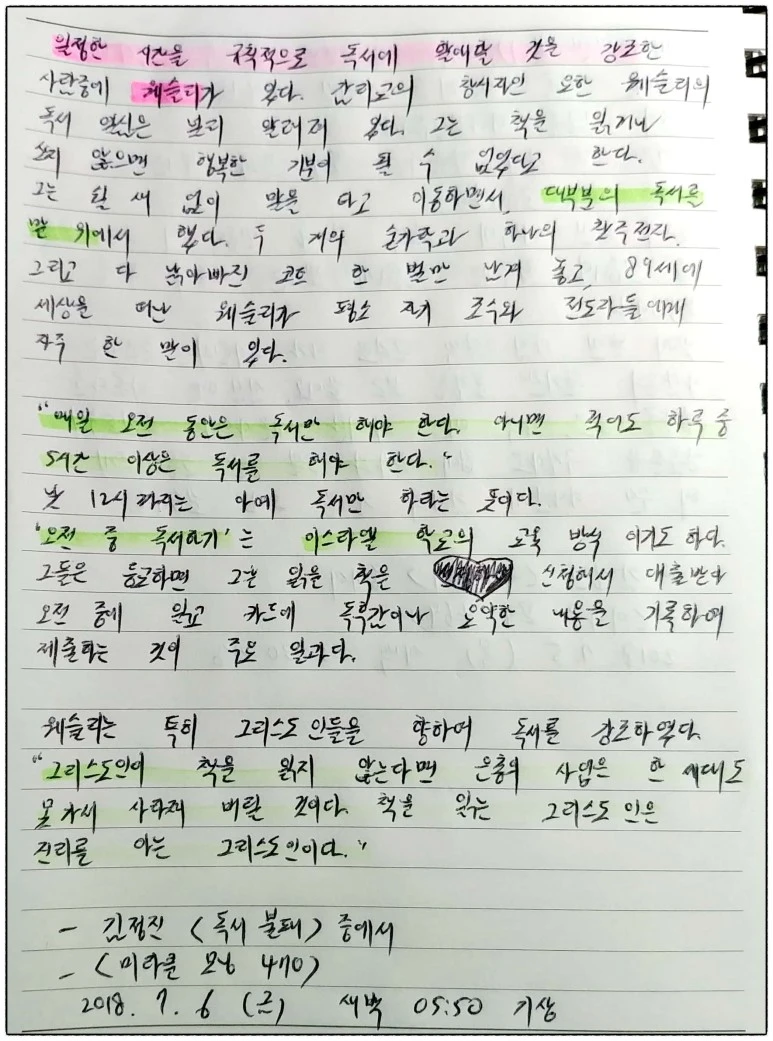 일정한 시간을 규칙적으로 독서에 할애할 것을 강조한
사람중에 웨슬리가 있다. 감리교의 창시자인 요한 웨슬리의
독서 열심은 널리 알려져 있다. 그는 책을 읽거나
쓰지 않으면 행복한 기분이 될 수 없었다고 한다.
그는 쉴 새 없이 말을 타고 이동하면서, 대부분의 독서를
말 위에서 했다. 두 개의 숟가락과 하나의 찻주전자,
그리고 다 낡아빠진 코트 한 벌만 남겨 놓고, 89세에
세상을 떠난 웨슬리가 평소 자기 조수와 전도자들에게
자주 한 말이 있다.
"매일 오전 동안은 독서만 해야 한다. 아니면 적어도 하루 중
5시간 이상은 독서를 해야 한다."
낮 12시 까지는 아예 독서만 하라는 뜻이다.
'오전 중 독서하기'는 이스라엘 학교의 교육 방식 이기도 하다.
그들은 등교하면 그날 읽을 책을 신청해서 대출받아
오전 중에 읽고 카드에 독후감이나 요약한 내용을 기록하여
제출하는 것이 주요 일과다.
웨슬리는 특히 그리스도인들을 향하여 독서를 강조하였다.
"그리스도인이 책을 읽지 않는다면 은총의 사업은 한 세대도
못가서 사라져 버릴 것이다. 책을 읽는 그리스도인은
진리를 아는 그리스도인이다."
- 김정진 <독서 불패> 중에서
- <미라클 모닝 470>
2018. 7. 6 (금) 새벽 05:50 기상